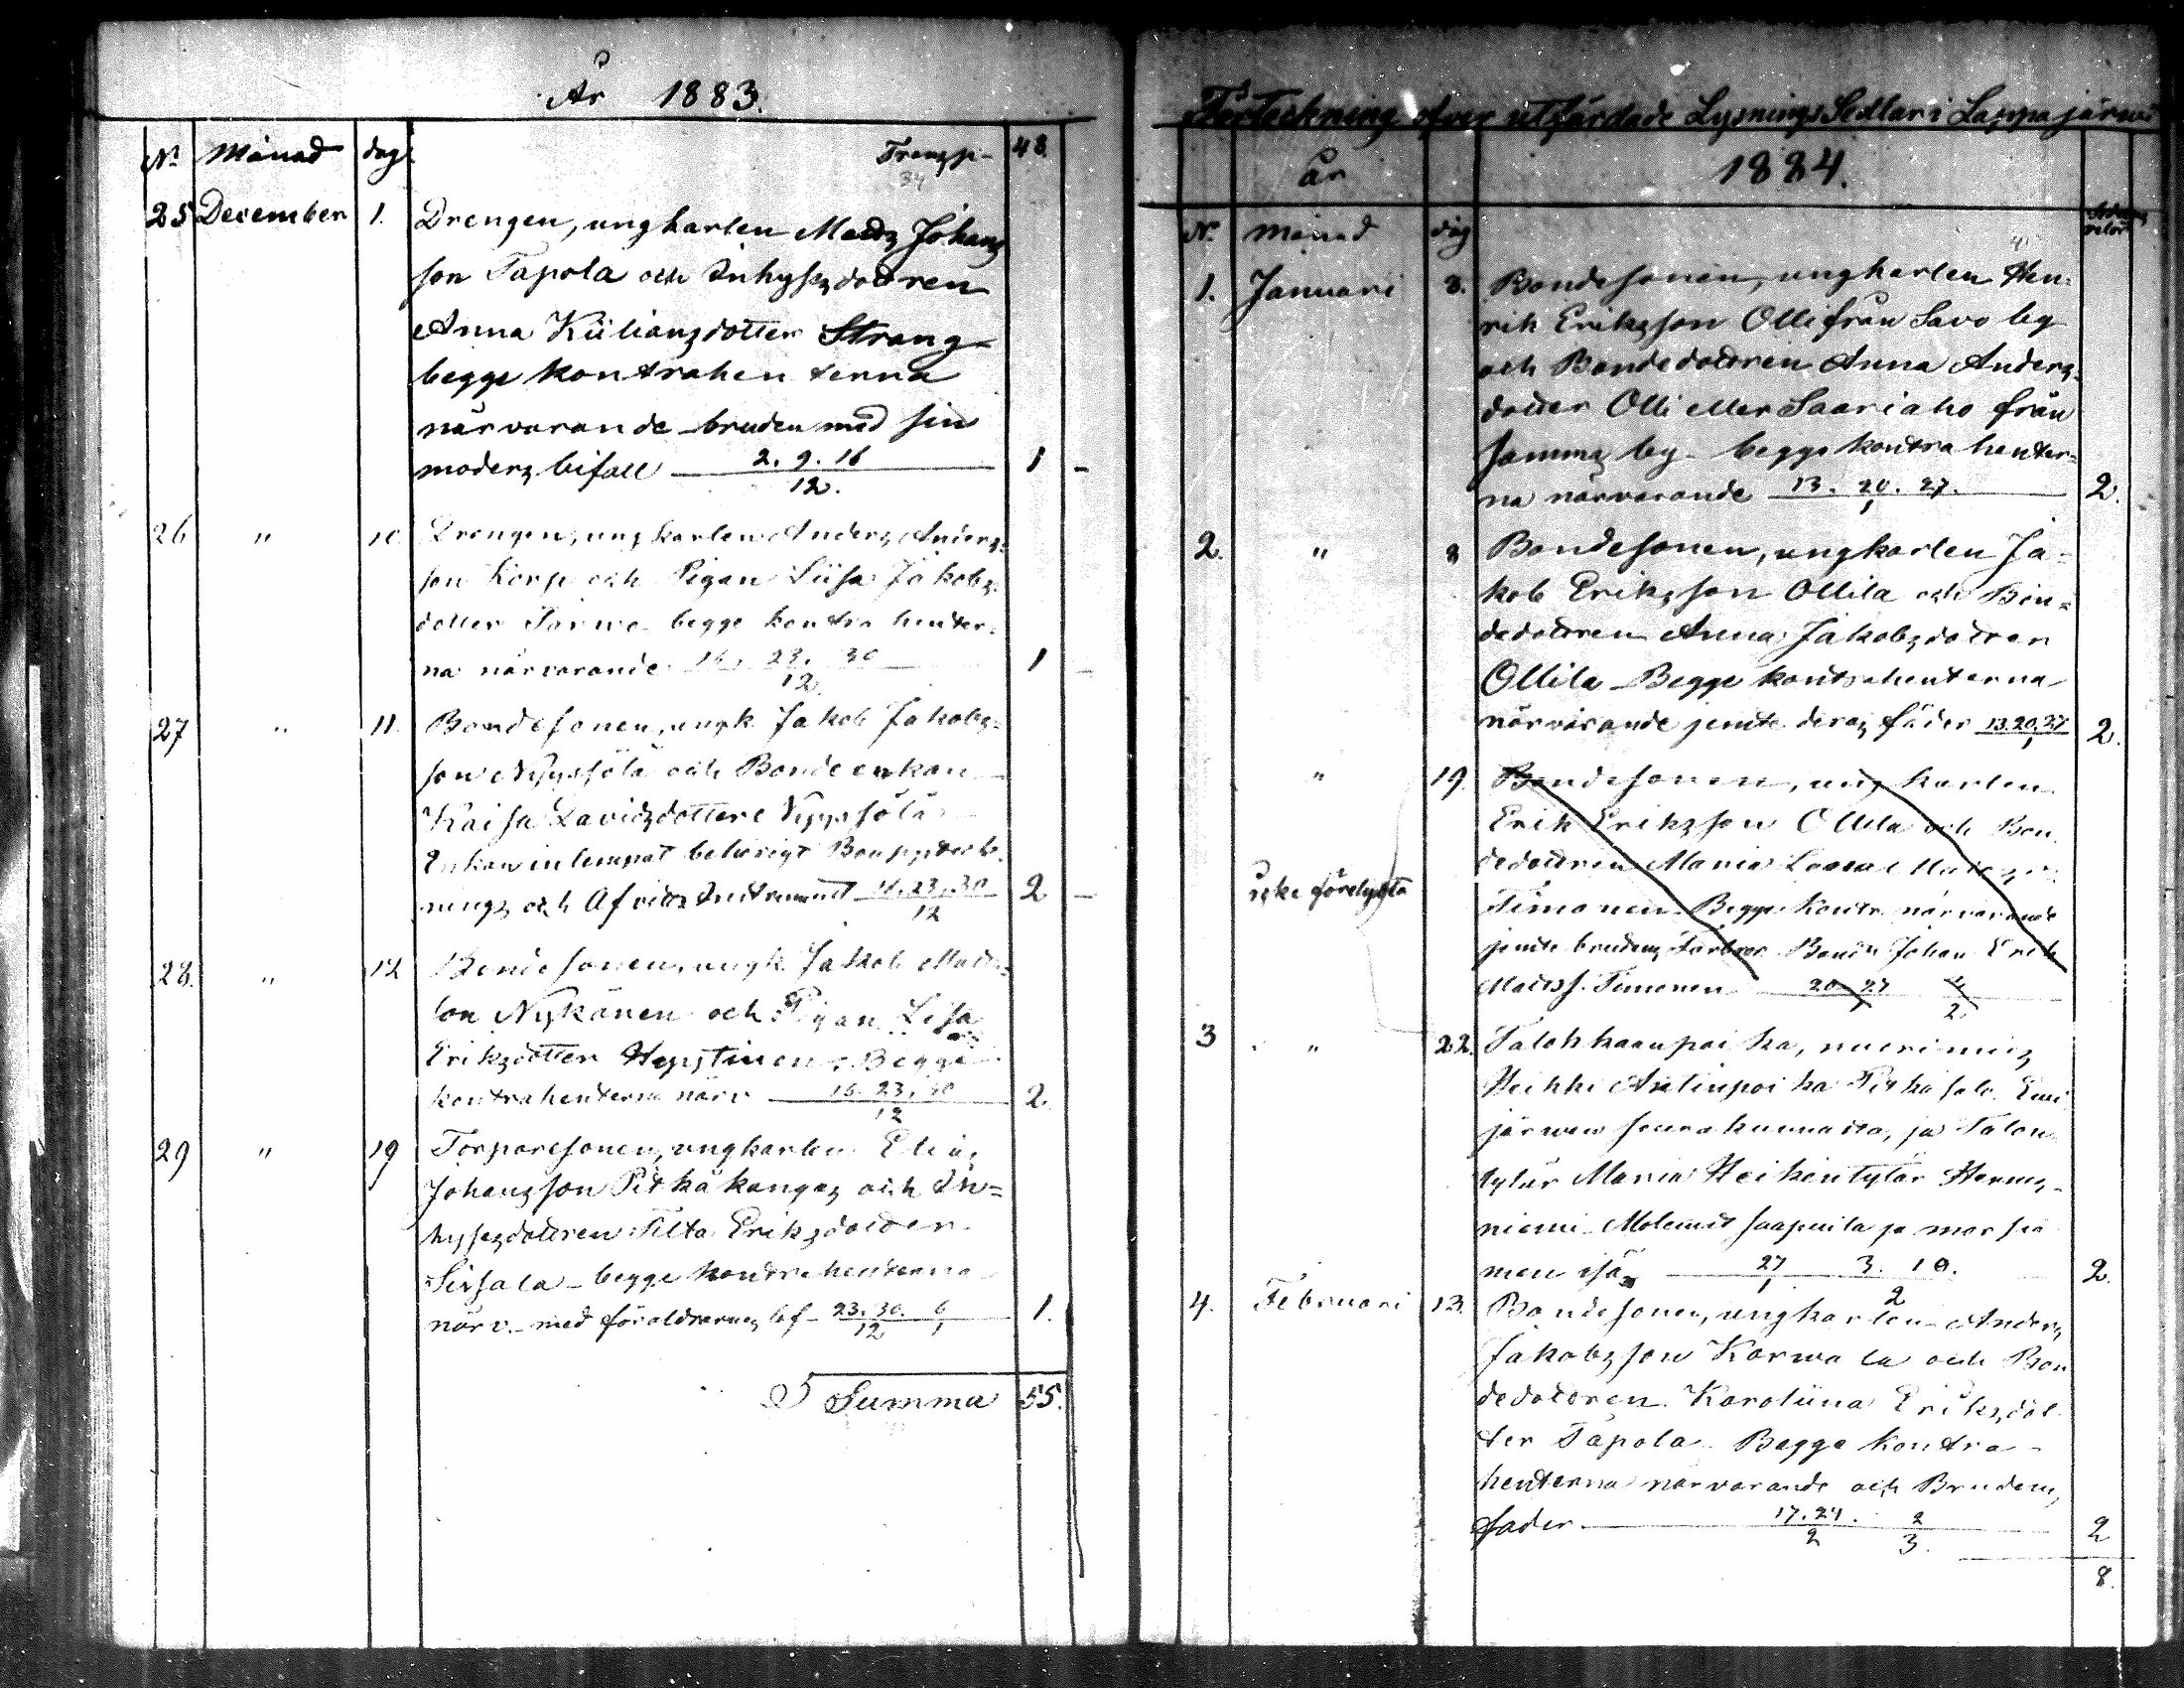 År 1883.
No Månad dag Transp. 48.
25 December 1. Drengen, ungkarlen Matts Johans
son Tapola och Inhysesdottren
Anna Kiiliansdotter Strang
begge kontrahenterna
närvarande bruden med sin
moders bifall 2. 9. 16 1 -
12.
26 " 10 Drengen, ungkarlen Anders Anders-
son Korp och Pigan Liisa Jakobs-
dotter Järwe begge kontrahenter-
na närvarande 16. 23. 30 1 -
12
27 " 11. Bondesonen, ungk. Jakob Jakobs-
son och Bondeenkan
Kaisa Davidsdotter
Enkan inlemnat behörigt Bouppteck-
nings och Afvittr. Instrument 16. 23. 30 2 -
12
28. " 12 Bondesonen, ungk. Jakob Matts-
son Nykänen och Pigan Lisa
Eriksdotter Begge
kontrahenterna närv. 16. 23. 30 2.
12
29 " 19 Torparesonen, ungkarlen Elias
Johansson Pitkäkangas och In=
hysesdottren Tilta Eriksdotter
Sissala - begge kontrahenterna
närv. - med föräldrarnes bif - 23. 30. 6 1.
12 1
Summa 55.
Förteckning öfver utfärdade Lysnings Sedlar i Lappajärwi
år 1884.
No månad dag
1. Januari 8. Bondesonen, ungkarlen Hen=
rik Eriksson Olli från Savo by
och Bondedottren Anna Anders-
dotter Olli eller Saariaho från
samma by - begge kontrahenter=
na närvarande 13. 20. 27. 2.
1
2. " 8 Bondesonen, ungkarlen Ja=
kob Eriksson Ollila och Bon=
dedottren Anna Jakobsdotter
Ollila - Begge kontrahenterna
närvarande jemte deras fäder 13. 20. 27 2.
1
" 19. Bondesonen, ungkarlen
Erik Eriksson Ollila och Bon
dedottren Maria
icke förelysta Timonen - Begge Kontr. närvarande
jemte brudens Farbror Bonde Johan Erik
Matss. Timonen 20 27
1 2
3 " 22. Talokkaanpoika, nuorimies
Heikki Antinpoika Pitkäsalo Ewi
järwen seurakunnasta, ja Talon
tytär Maria Heikintytär
niemi - Molemat saapuila ja morsia
men isä 27 3. 10. 2.
1 2
4. Februari 13. Bondesonen, ungkarlen Anders
Jakobsson Karwala och Bon
dedottren Karoliina Eriksdot
ter Tapola. Begge kontra-
henterna närvarande och Brudens
fader 17. 24. 2 2
2 3.
8.